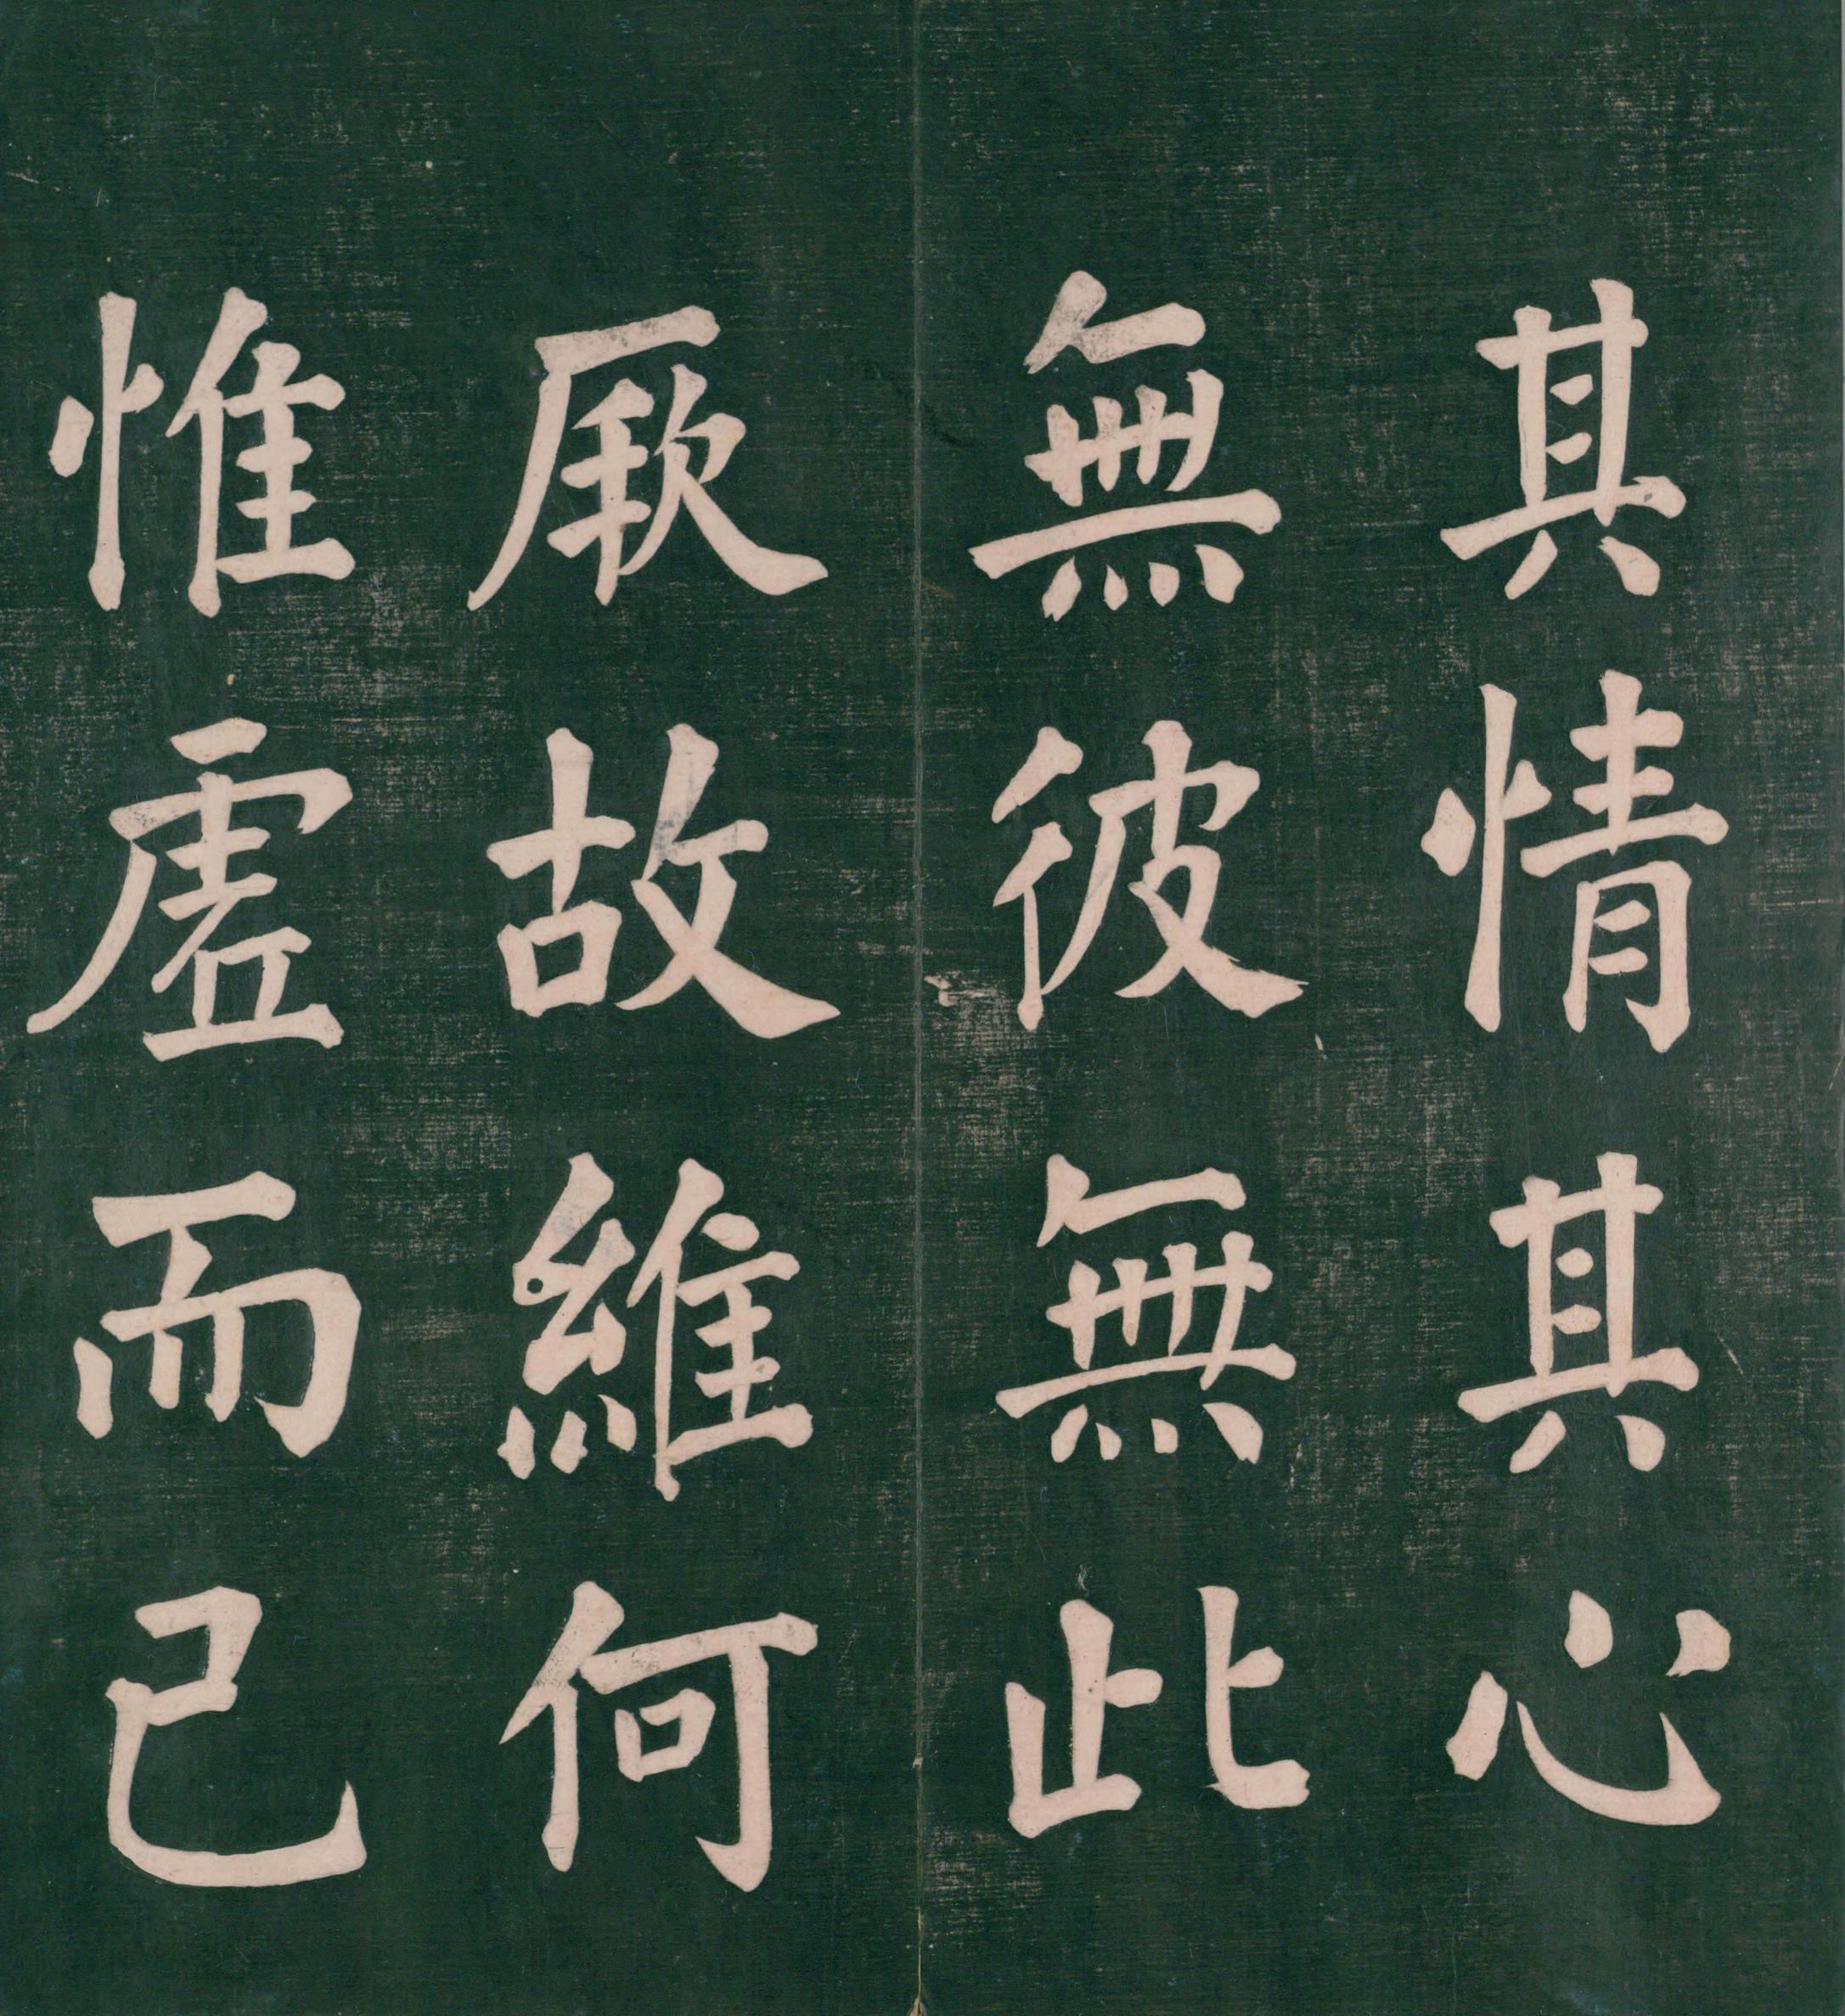 其情其心
無彼無此
厥故維何
惟虛而已